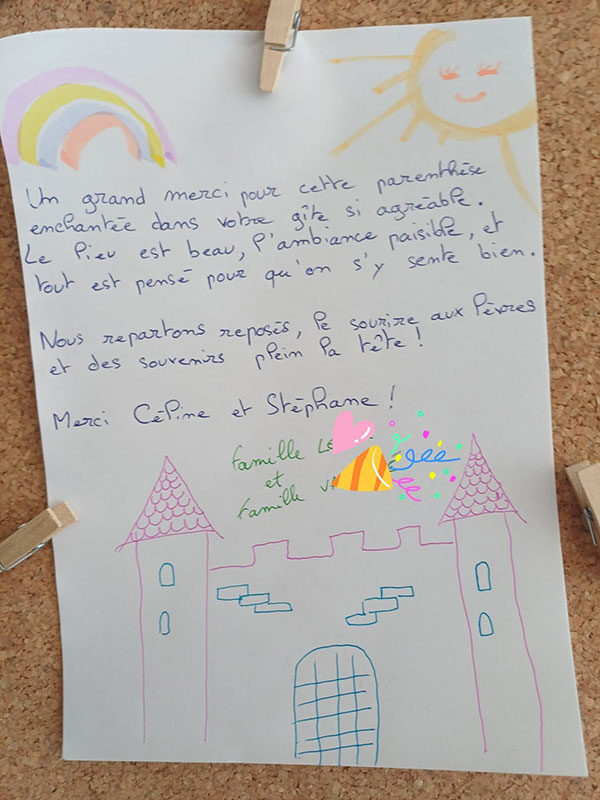 Un grand merci pour cette parenthèse
enchantée dans votre gîte si agréable.
Le lieu est beau, l'ambiance paisible, et
tout est pensé pour qu'on s'y sente bien.
Nous repartons reposés, le sourire aux lèvres
et des souvenirs plein la tête !
Merci Céline et Stéphane !
famille
et
famille